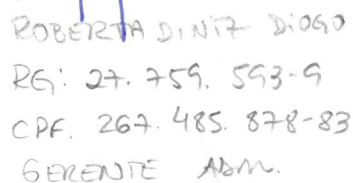 ROBERTA DINIZ DIOGO
RG: 27.759.593-9
CPF. 267.485.878-83
GERENTE ADM.